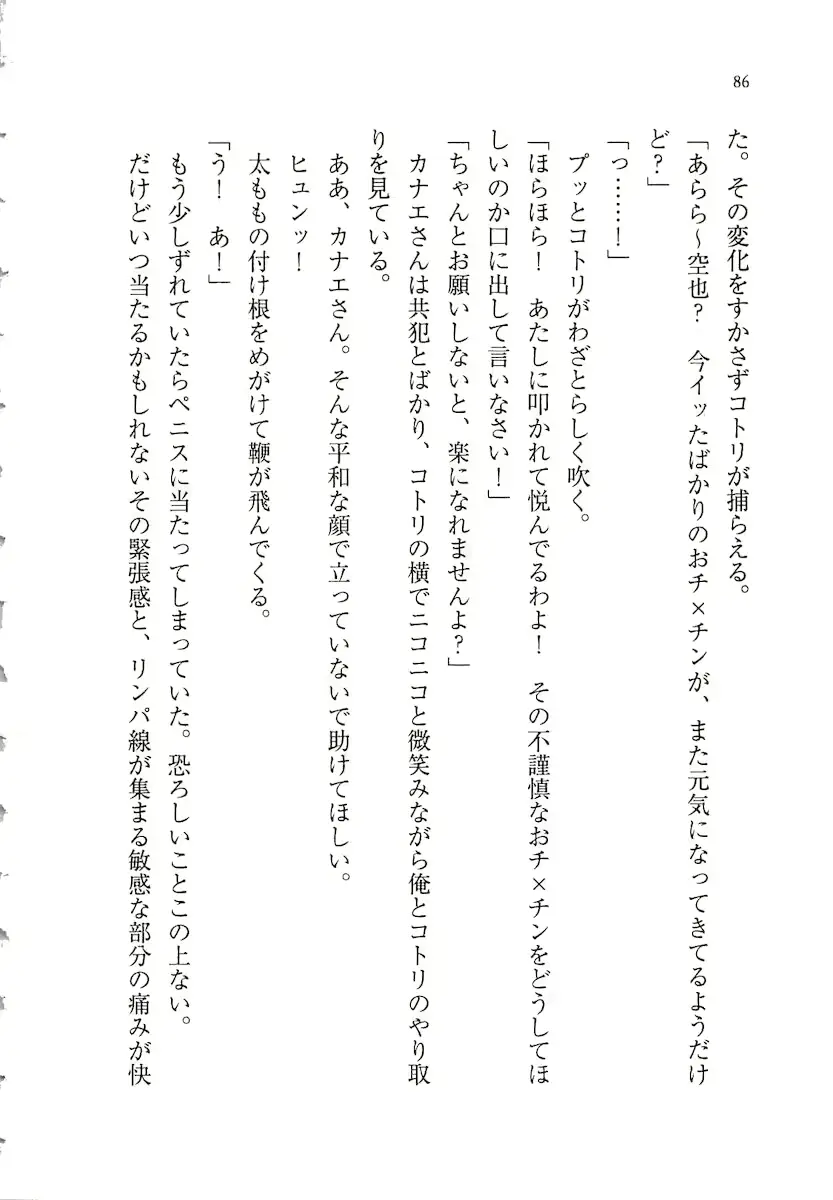 86
た。その変化をすかさずコトリが捕らえる。
「あらら〜空也?　今イッたばかりのおチ×チンが、また元気になってきてるようだけ
ど?」
「っ……!」
プッとコトリがわざとらしく吹く。
「ほらほら!　あたしに叩かれて悦んでるわよ!　その不謹慎なおチ×チンをどうしてほ
しいのか口に出して言いなさい!」
「ちゃんとお願いしないと、楽になれませんよ?」
カナエさんは共犯とばかり、コトリの横でニコニコと微笑みながら俺とコトリのやり取
りを見ている。
ああ、カナエさん。そんな平和な顔で立っていないで助けてほしい。
ヒュンッ!
太ももの付け根をめがけて鞭が飛んでくる。
「う!　あ!」
もう少しずれていたらペニスに当たってしまっていた。恐ろしいことこの上ない。
だけどいつ当たるかもしれないその緊張感と、リンパ線が集まる敏感な部分の痛みが快